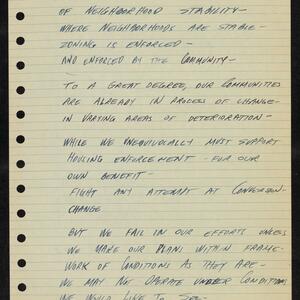 OF NEIGHBORHOOD STABILITY -
WHERE NEIGHBORHOODS ARE STABLE -
ZONING IS ENFORCED -
AND ENFORCED BY THE COMMUNITY -
TO A GREAT DEGREE, OUR COMMUNITIES
ARE ALREADY IN PROCESS OF CHANGE -
IN VARYING AREAS OF DETERIORATION -
WHILE WE UNEQUIVOCALLY MUST SUPPORT
HOUSING ENFORCEMENT - FOR OUR
OWN BENEFIT -
FIGHT ANY ATTEMPT AT CONVERSION -
CHANGE
BUT WE FAIL IN OUR EFFORTS UNLESS
WE MAKE OUR PLANS WITHIN FRAME-
WORK OF CONDITIONS AS THEY ARE -
WE MAY NOT OPERATE UNDER CONDITIONS
WE WOULD LIKE TO SEE -